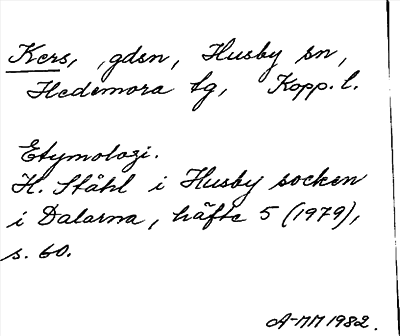 Kers, gden, Husby sn,
Hedemora tg, Kopp. l.
Etymologi.
H. Ståhl i Husby socken
i Dalarna, häfte 5 (1979),
s. 60.
A-MM 1982.